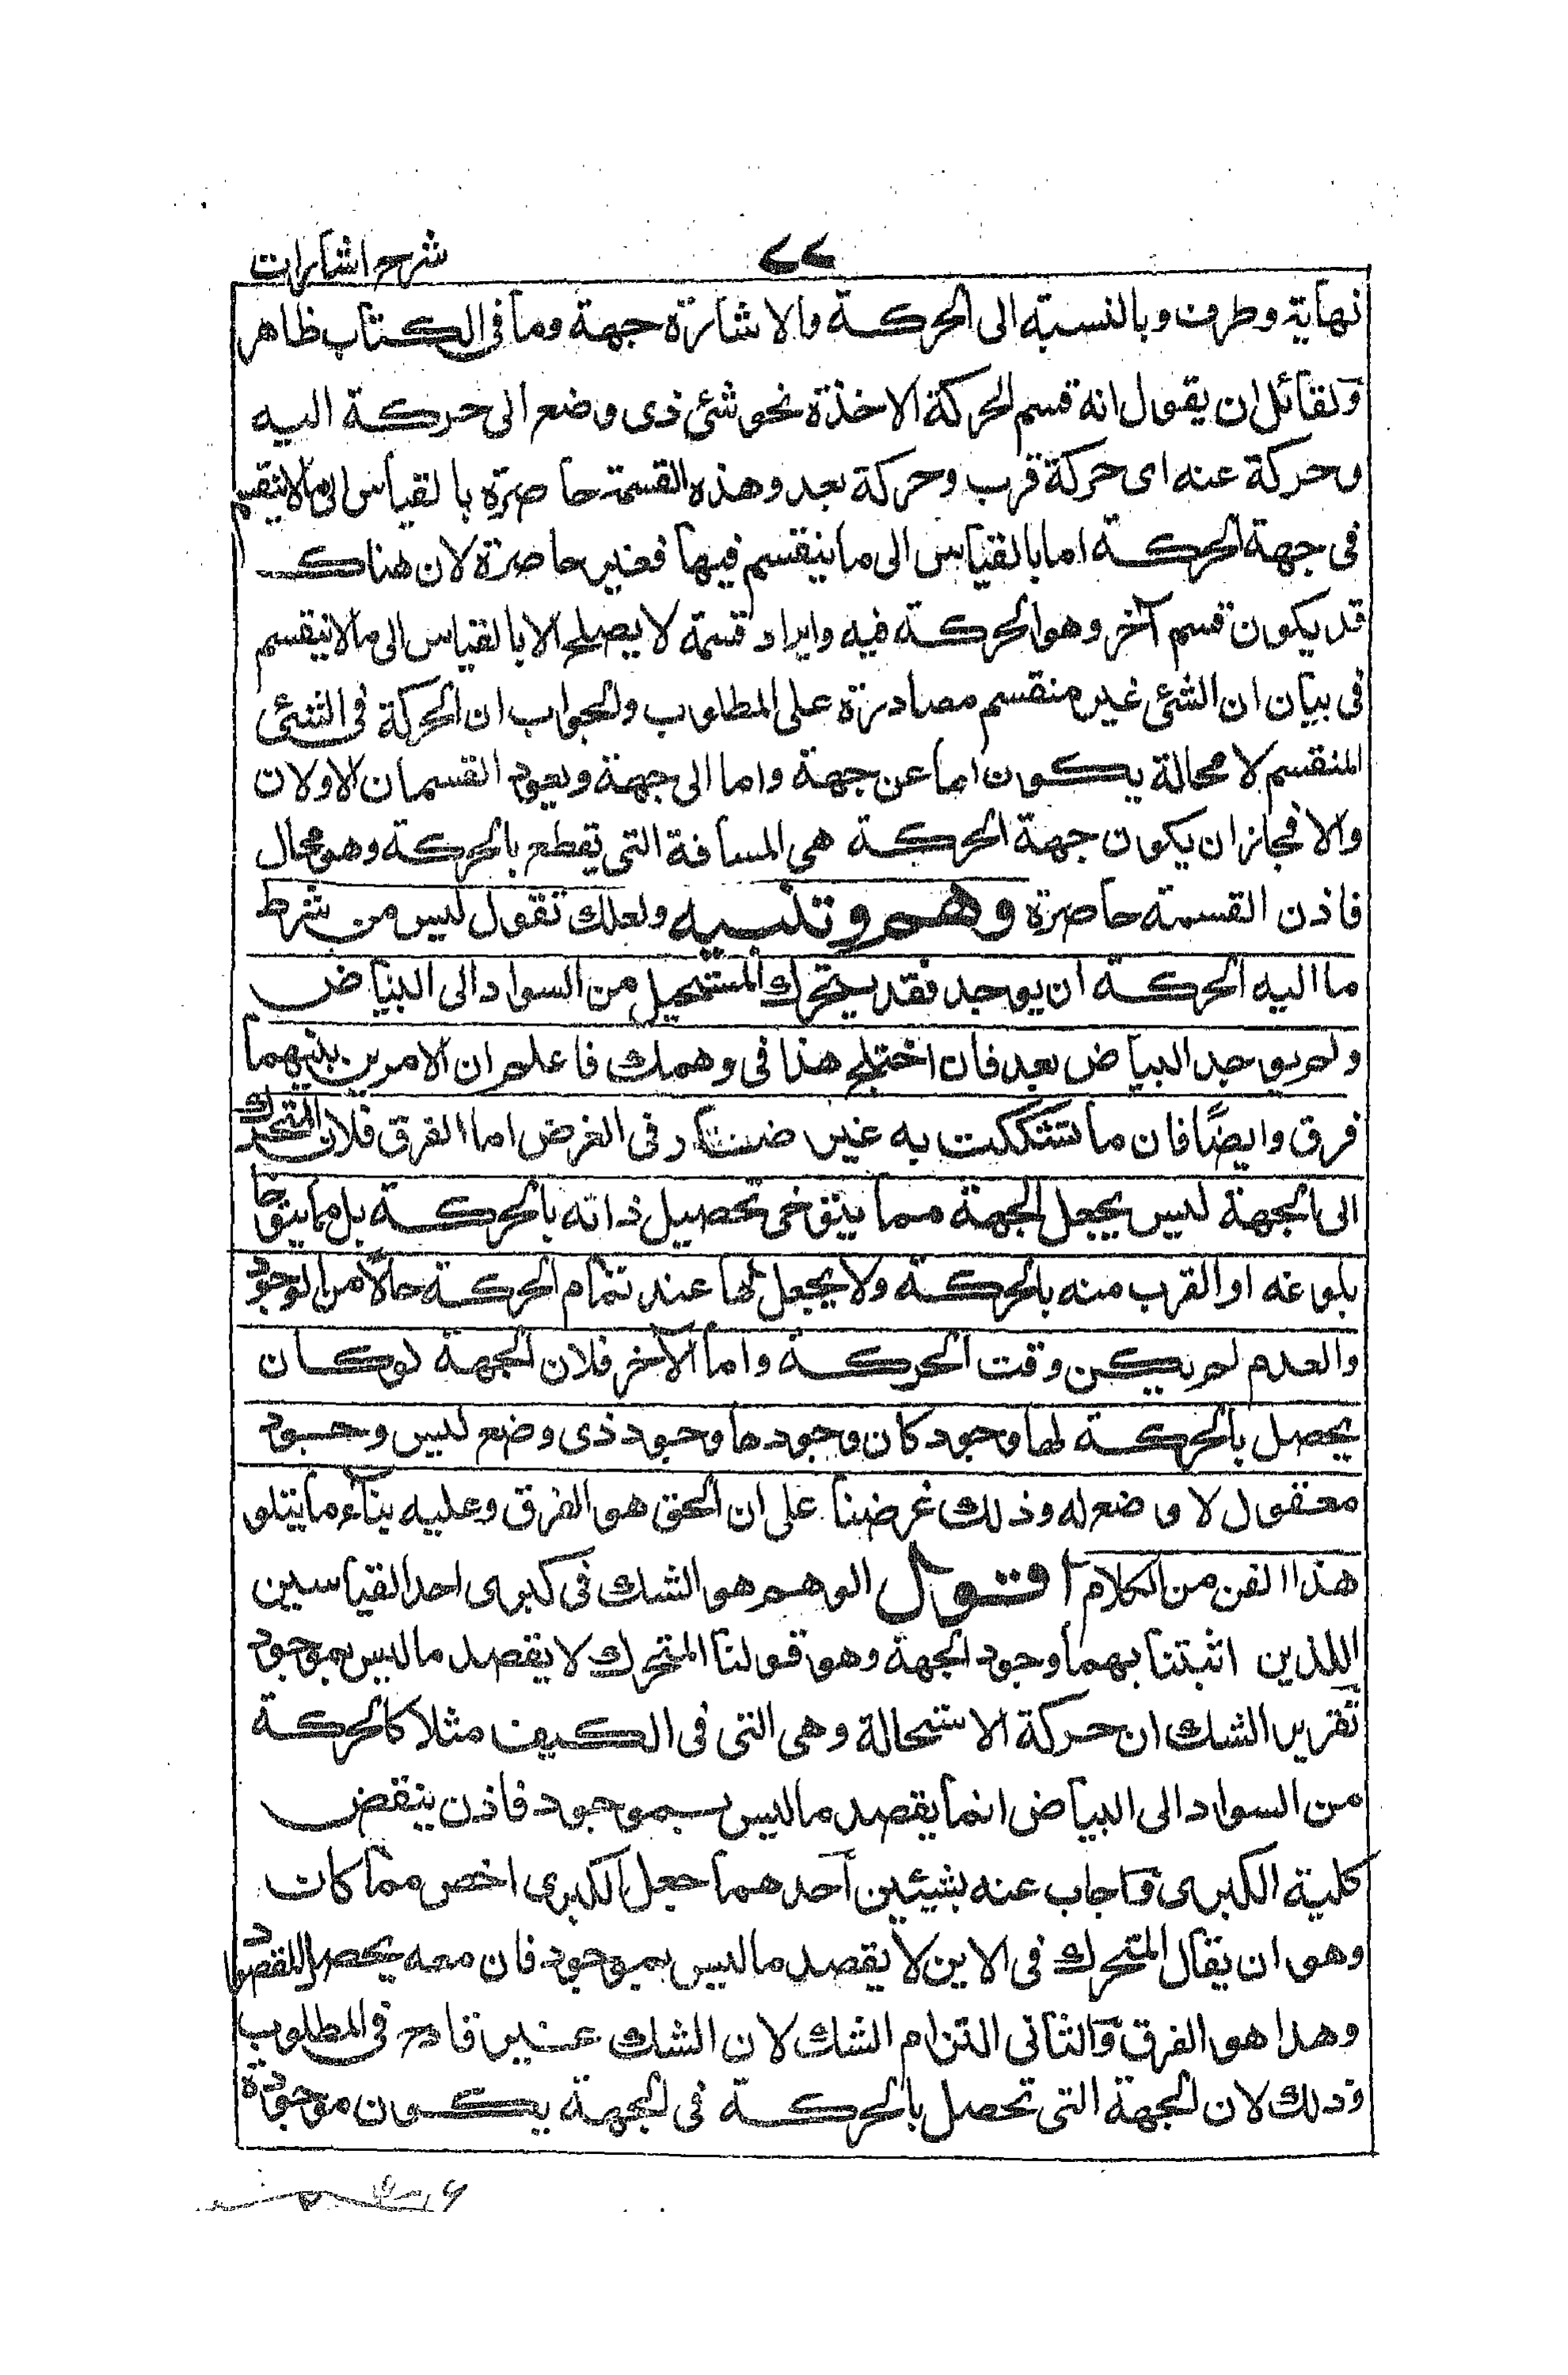 شرح اشارات
٧٧
نهاية وطرف وبالنسبة الى الحركة والاشارة جهة وما فى الكتاب ظاهر
ولقائل ان يقول انه قسم الحركة الاخذة نحو شئ ذى وضع الى حركة اليه
وحركة عنه اى حركة قرب وحركة بعد وهذه القسمة حاصرة بالقياس الى ما لا ينقسم
فى جهة الحركة اما بالقياس الى ما ينقسم فيها فغير حاصرة لان هناك
قد يكون قسم آخر وهو الحركة فيه وايراد قسمة لا يصلح الا بالقياس الى ما لا ينقسم
فى بيان ان الشئ غير منقسم مصادرة على المطلوب والجواب ان الحركة فى الشئ
المنقسم لا محالة يكون اما عن جهة واما الى جهة ويعود القسمان الاولان
والا فجاز ان يكون جهة الحركة هى المسافة التى يقطع بالحركة وهو محال
فاذن القسمة حاصرة وهم وتنبيه ولعلك تقول ليس من شرط
ما اليه الحركة ان يوجد فقد يتحرك المستحيل من السواد الى البياض
ولم يوجد البياض بعد فان اختلج هذا فى وهمك فاعلم ان الامرين بينهما
فرق وايضًا فان ما تشككت به غير ضار فى الغرض اما الفرق فلان المتحرك
الى الجهة ليس يجعل الجهة مما يتوخى تحصيل ذاته بالحركة بل مما يتوخا
بلوغه او القرب منه بالحركة ولا يجعل لها عند تمام الحركة حالًا من الوجود
والعدم لم يكن وقت الحركة واما الآخر فلان الجهة لو كان
يحصل بالحركة لها وجود كان وجودها وجود ذى وضع ليس وجود
معقول لا وضع له وذلك غرضنا على ان الحق هو الفرق وعليه بناء ما يتلو
هذا الفن من الكلام اقول الوهم هو الشك فى كبرى احد القياسين
اللذين اثبتنا بهما وجود الجهة وهو قولنا المتحرك لا يقصد ما ليس بموجود
تقرير الشك ان حركة الاستحالة وهى التى فى الكيف مثلا كالحركة
من السواد الى البياض انما يقصد ما ليس بموجود فاذن ينقض
كلية الكبرى واجاب عنه بشيئين احدهما جعل الكبرى اخص مما كان
وهو ان يقال المتحرك فى الاين لا يقصد ما ليس بموجود فان معه يحصل المقصود
وهذا هو الفرق والثانى التزام الشك لان الشك غير قادح فى المطلوب
وذلك لان الجهة التى تحصل بالحركة فى الجهة يكون موجودة